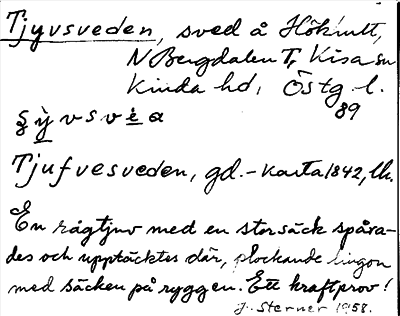 Tjyvsveden, sved å Hökhult,
N Bergdalen T, Kisa sn
Kinda hd, Östg. l.
89
ȳ v s v è a
Tjufvesveden, gd. - karta 1842, lk.
En rågtjuv med en stor säck spåra-
des och upptäcktes där, plockande lingon
med säcken på ryggen. Ett kraftprov!
J. Sterner 1958.